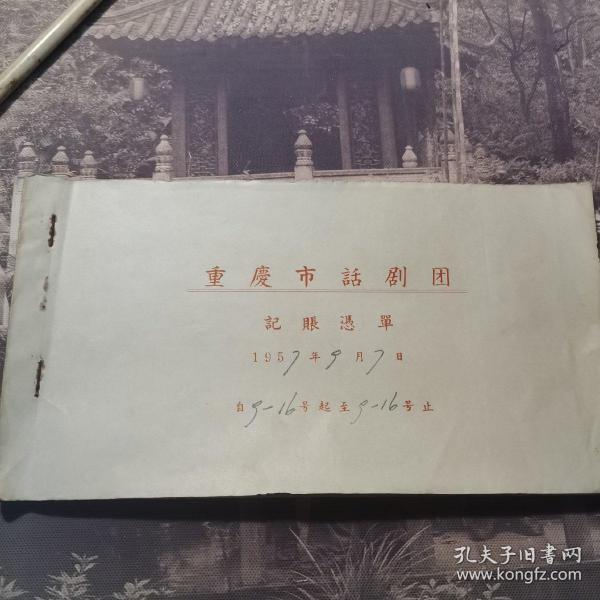 重慶市話剧团
記賬憑單
1957年9月7日
自9-16号起至9-16号止
孔夫子旧書网
www.kongfz.com